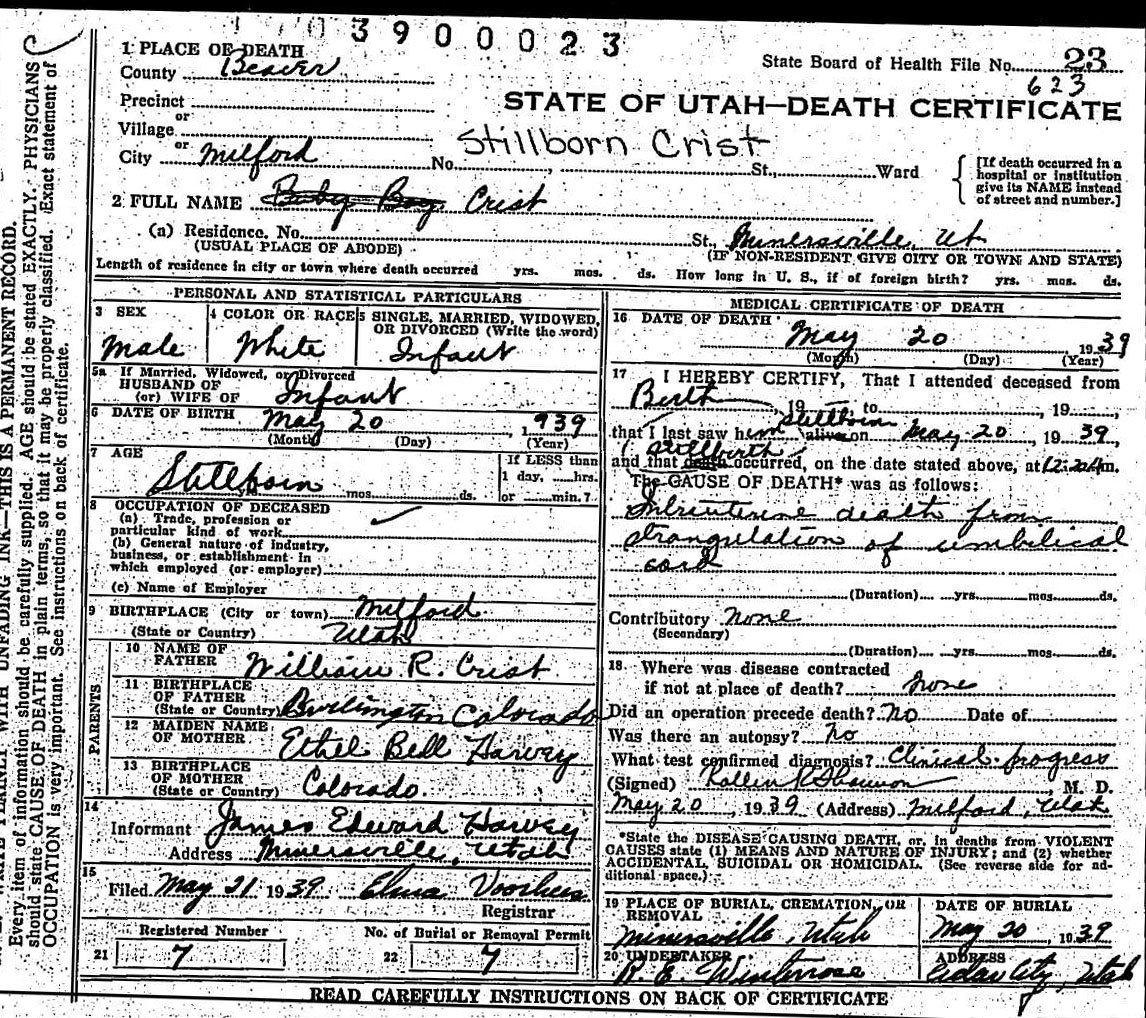 3900023
1 PLACE OF DEATH
County Beaver
State Board of Health File No. 23
623
Precinct
or
Village
or
City Milford No. St., Ward
STATE OF UTAH—DEATH CERTIFICATE
Stillborn Crist
[If death occurred in a
hospital or institution
give its NAME instead
of street and number.]
2 FULL NAME Baby Boy Crist
(a) Residence. No. St., Minersville, Ut
(USUAL PLACE OF ABODE) (IF NON-RESIDENT GIVE CITY OR TOWN AND STATE)
Length of residence in city or town where death occurred yrs. mos. ds. How long in U. S., if of foreign birth? yrs. mos. ds.
PERSONAL AND STATISTICAL PARTICULARS
3 SEX
Male
4 COLOR OR RACE
White
5 SINGLE, MARRIED, WIDOWED,
OR DIVORCED (Write the word)
Infant
5a If Married, Widowed, or Divorced
HUSBAND OF
(or) WIFE OF Infant
6 DATE OF BIRTH May 20, 1939
(Month) (Day) (Year)
7 AGE
Stillborn yrs. mos. ds.
If LESS than
1 day, hrs.
or min.?
8 OCCUPATION OF DECEASED
(a) Trade, profession or
particular kind of work
(b) General nature of industry,
business, or establishment in
which employed (or employer)
(c) Name of Employer
9 BIRTHPLACE (City or town) Milford
(State or Country) Utah
PARENTS
10 NAME OF
FATHER William R. Crist
11 BIRTHPLACE
OF FATHER
(State or Country) Burlington Colorado
12 MAIDEN NAME
OF MOTHER Ethel Bell Harvey
13 BIRTHPLACE
OF MOTHER
(State or Country) Colorado.
14
Informant James Edward Harvey
Address Minersville, Utah
15
Filed May 21 1939 Elma Voorhees
Registrar
Registered Number
21 7
No. of Burial or Removal Permit
22 7
MEDICAL CERTIFICATE OF DEATH
16 DATE OF DEATH
May 20 1939
(Month) (Day) (Year)
17 I HEREBY CERTIFY, That I attended deceased from
Birth, 19 to , 19 ,
Stillborn
that I last saw him alive on May 20, 1939,
Stillbirth
and that death occurred, on the date stated above, at m.
The CAUSE OF DEATH* was as follows:
Intrauterine death from
strangulation of umbilical
cord
(Duration) yrs. mos. ds.
Contributory None
(Secondary)
(Duration) yrs. mos. ds.
18 Where was disease contracted
if not at place of death? None
Did an operation precede death? No Date of
Was there an autopsy? No
What test confirmed diagnosis? Clinical progress
(Signed) , M. D.
May 20, 1939 (Address) Milford, Utah
*State the DISEASE CAUSING DEATH, or, in deaths from VIOLENT
CAUSES state (1) MEANS AND NATURE OF INJURY; and (2) whether
ACCIDENTAL, SUICIDAL OR HOMICIDAL. (See reverse side for ad-
ditional space.)
19 PLACE OF BURIAL, CREMATION, OR
REMOVAL
Minersville, Utah
DATE OF BURIAL
May 20, 1939
20 UNDERTAKER
R. E. Winterrose
ADDRESS
Cedar City, Utah
READ CAREFULLY INSTRUCTIONS ON BACK OF CERTIFICATE
WRITE PLAINLY WITH UNFADING INK—THIS IS A PERMANENT RECORD.
Every item of information should be carefully supplied. AGE should be stated EXACTLY. PHYSICIANS
should state CAUSE OF DEATH in plain terms, so that it may be properly classified. Exact statement of
OCCUPATION is very important. See instructions on back of certificate.